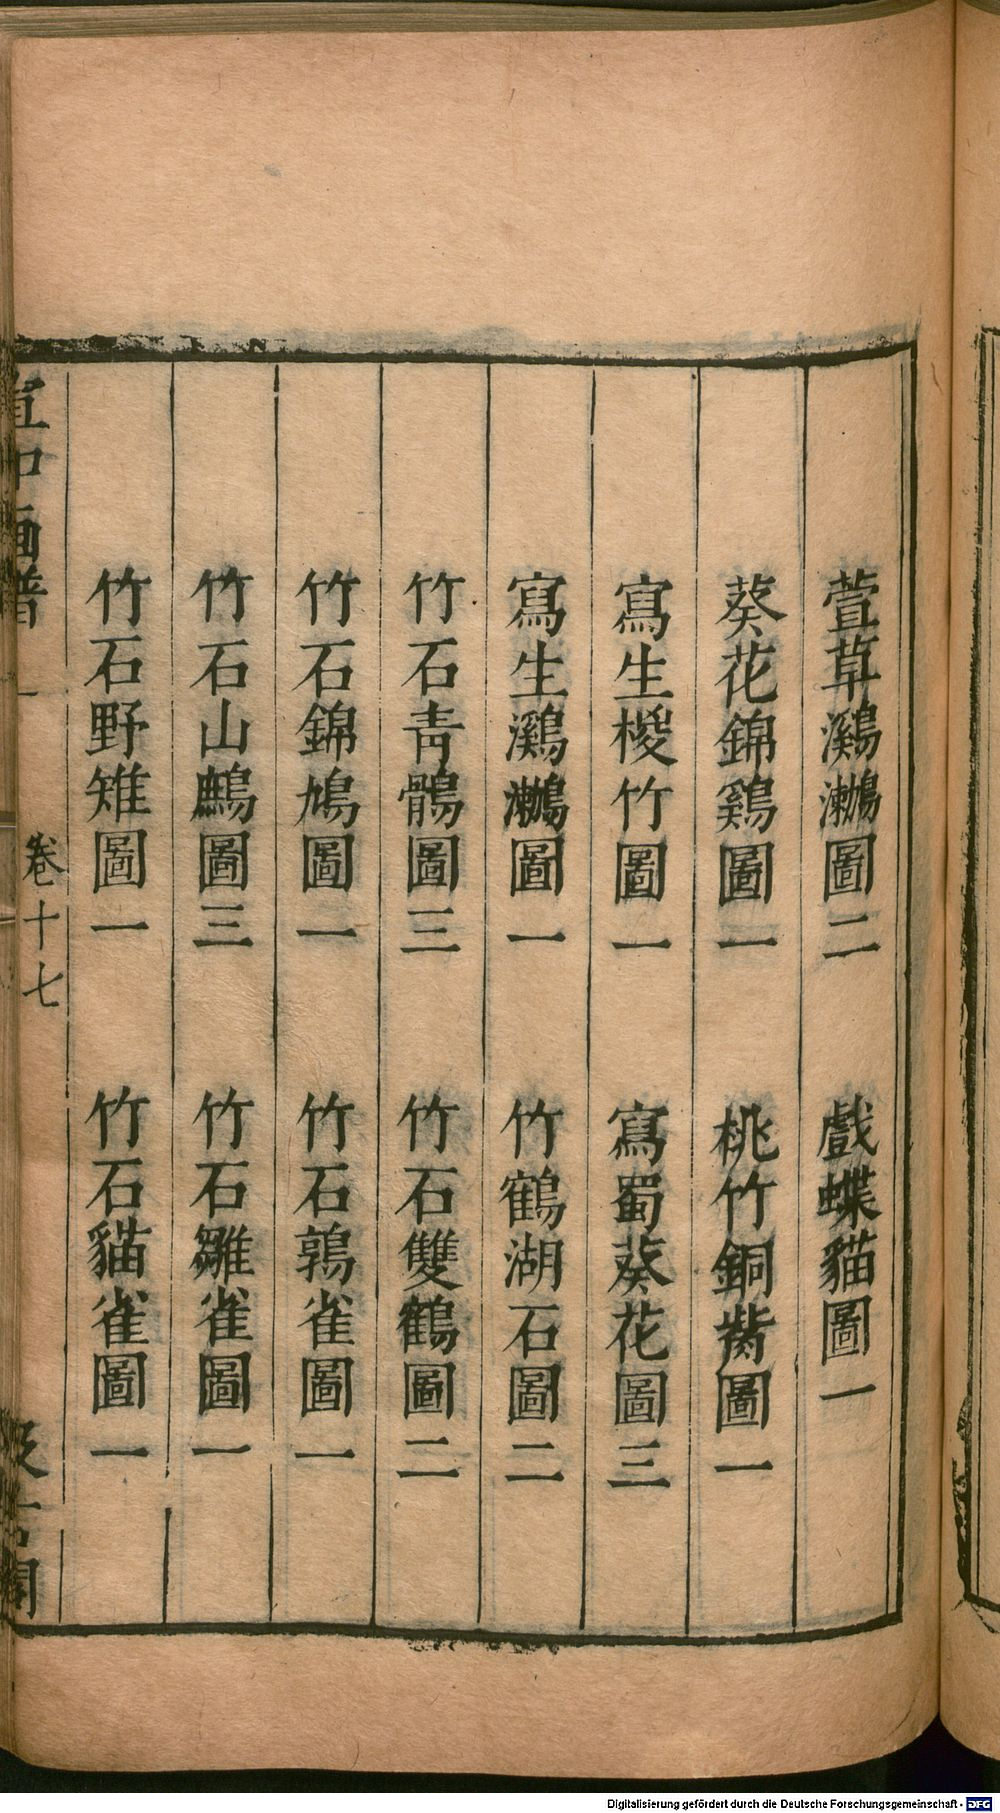 萱草鸂鷘圖二　戲蝶貓圖一
葵花錦鷄圖一　桃竹銅觜圖一
寫生椶竹圖一　寫蜀葵花圖三
寫生鸂鷘圖一　竹鶴湖石圖二
竹石青鶻圖三　竹石雙鶴圖二
竹石錦鳩圖一　竹石鶉雀圖一
竹石山鷓圖三　竹石雛雀圖一
竹石野雉圖一　竹石貓雀圖一
宣和画譜　卷十七　汲古閣
Digitalisierung gefördert durch die Deutsche Forschungsgemeinschaft - DFG